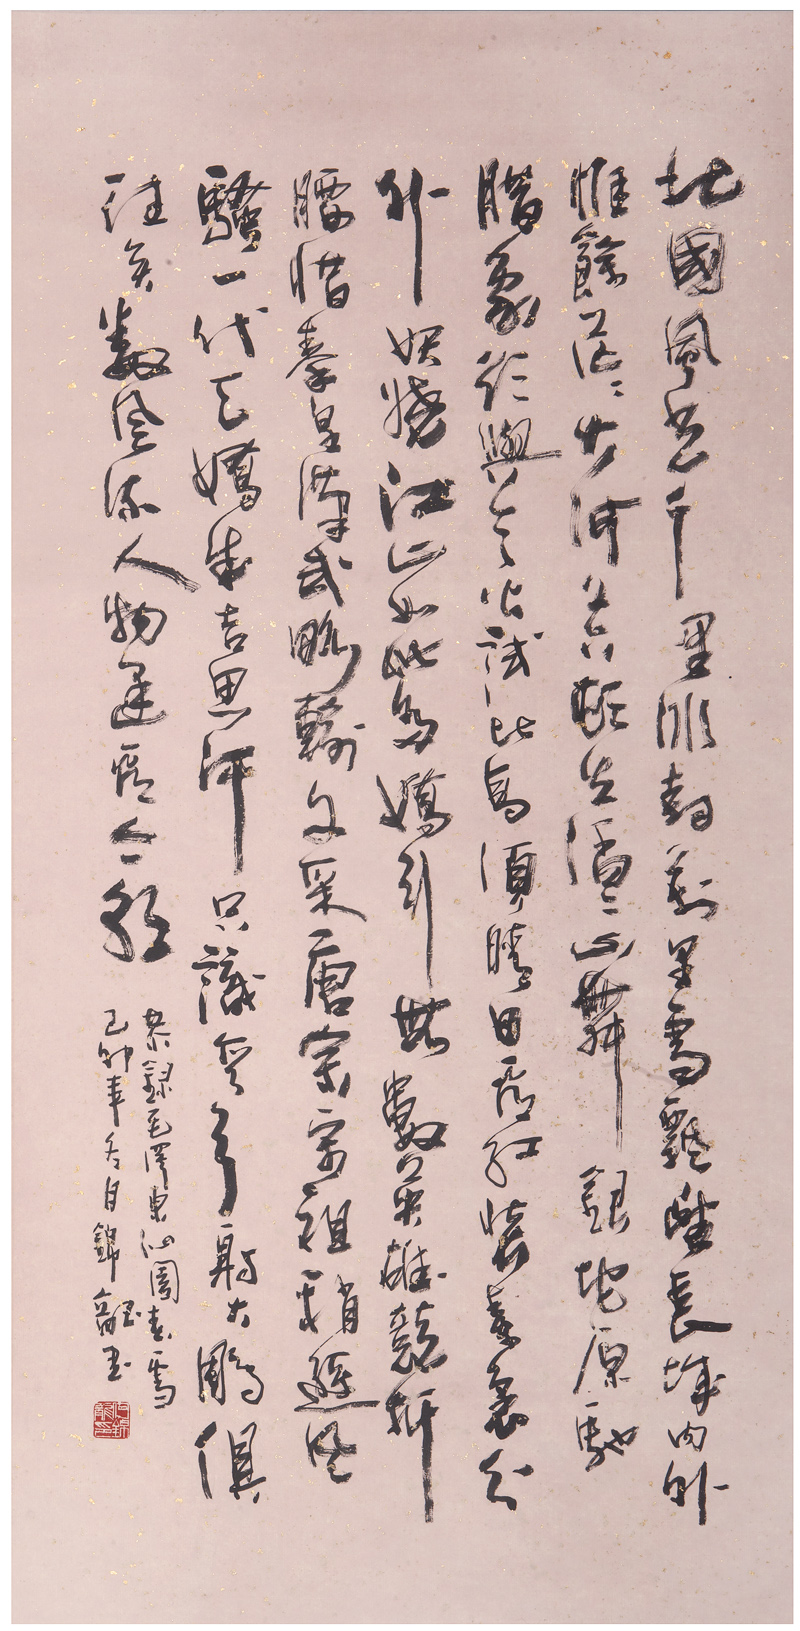 北國風光千里冰封萬里雪飄望長城內外
惟餘莽〻大河上下頓失滔〻山舞銀蛇原馳
腊象欲與天公試比高須晴日看紅裝素裹分
外妖嬈江山如此多嬌引無數英雄競折
腰惜秦皇漢武略輸文采唐宗宋祖稍遜風
騷一代天嬌成吉思汗只識彎弓射大鵰俱
往矣數風流人物還看今朝
恭錄毛澤東沁園春雪
己卯年冬月錦